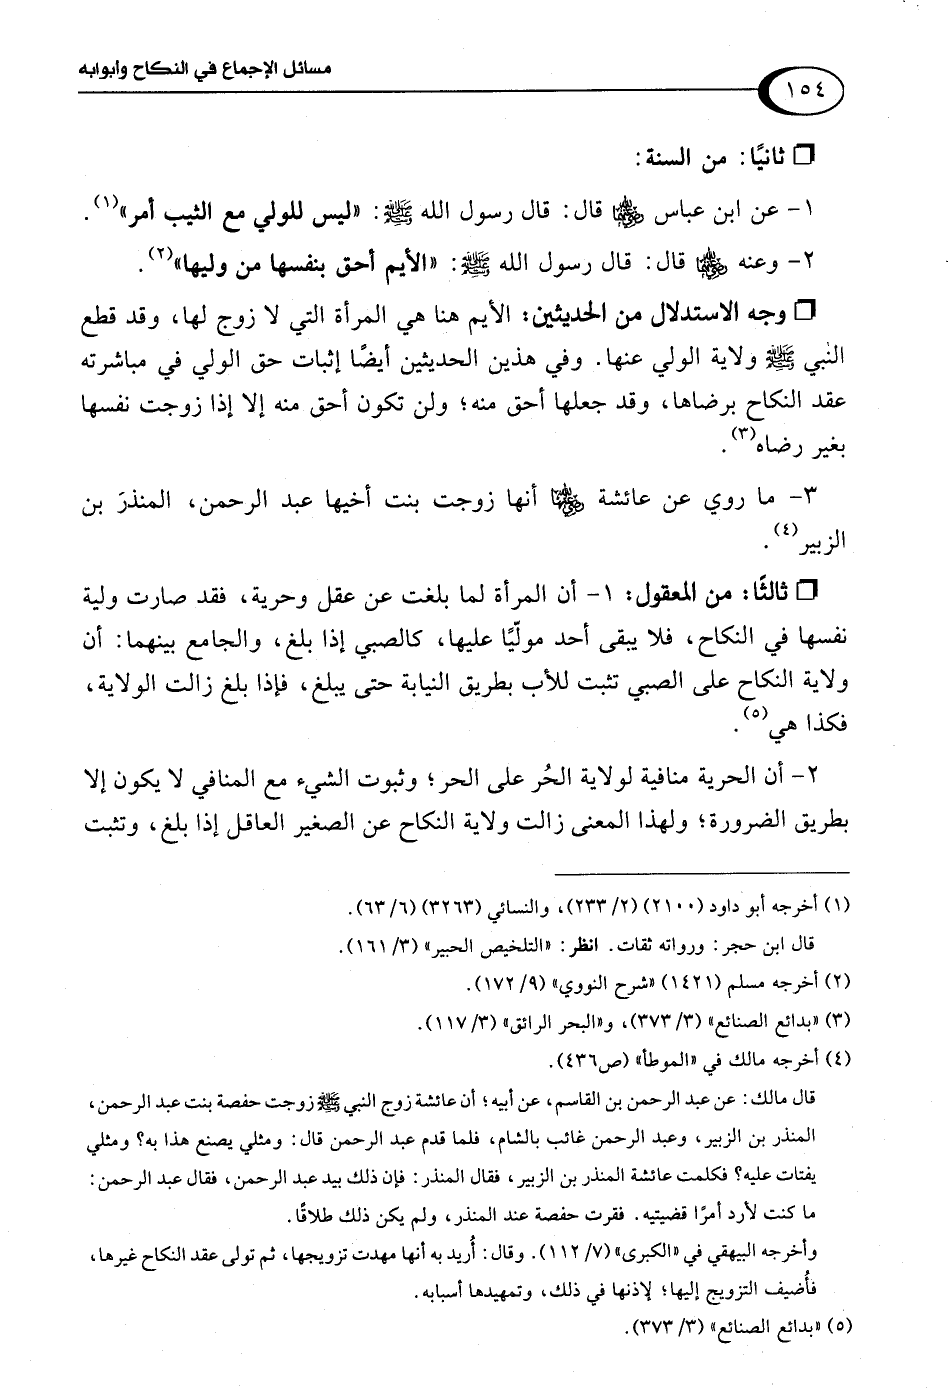 مسائل الإجماع في النكاح وأبوابه
١٥٤
❏ ثانيًا: من السنة:
١- عن ابن عباس ﵄ قال: قال رسول الله ﷺ: «ليس للولي مع الثيب أمر»(١).
٢- وعنه ﵁ قال: قال رسول الله ﷺ: «الأيم أحق بنفسها من وليها»(٢).
❏ وجه الاستدلال من الحديثين: الأيم هنا هي المرأة التي لا زوج لها، وقد قطع
النبي ﷺ ولاية الولي عنها. وفي هذين الحديثين أيضًا إثبات حق الولي في مباشرته
عقد النكاح برضاها، وقد جعلها أحق منه؛ ولن تكون أحق منه إلا إذا زوجت نفسها
بغير رضاه(٣).
٣- ما روي عن عائشة ﵂ أنها زوجت بنت أخيها عبد الرحمن، المنذرَ بن
الزبير(٤).
❏ ثالثًا: من المعقول: ١- أن المرأة لما بلغت عن عقل وحرية، فقد صارت ولية
نفسها في النكاح، فلا يبقى أحد مولّيًا عليها، كالصبي إذا بلغ، والجامع بينهما: أن
ولاية النكاح على الصبي تثبت للأب بطريق النيابة حتى يبلغ، فإذا بلغ زالت الولاية،
فكذا هي(٥).
٢- أن الحرية منافية لولاية الحُر على الحر؛ وثبوت الشيء مع المنافي لا يكون إلا
بطريق الضرورة؛ ولهذا المعنى زالت ولاية النكاح عن الصغير العاقل إذا بلغ، وتثبت
(١) أخرجه أبو داود (٢١٠٠) (٢/ ٢٣٣)، والنسائي (٣٢٦٣) (٦/ ٦٣).
قال ابن حجر: ورواته ثقات. انظر: «التلخيص الحبير» (٣/ ١٦١).
(٢) أخرجه مسلم (١٤٢١) «شرح النووي» (٩/ ١٧٢).
(٣) «بدائع الصنائع» (٣/ ٣٧٣)، و«البحر الرائق» (٣/ ١١٧).
(٤) أخرجه مالك في «الموطأ» (ص٤٣٦).
قال مالك: عن عبد الرحمن بن القاسم، عن أبيه؛ أن عائشة زوج النبي ﷺ زوجت حفصة بنت عبد الرحمن،
المنذر بن الزبير، وعبد الرحمن غائب بالشام، فلما قدم عبد الرحمن قال: ومثلي يصنع هذا به؟ ومثلي
يفتات عليه؟ فكلمت عائشة المنذر بن الزبير، فقال المنذر: فإن ذلك بيد عبد الرحمن، فقال عبد الرحمن:
ما كنت لأرد أمرًا قضيتيه. فقرت حفصة عند المنذر، ولم يكن ذلك طلاقًا.
وأخرجه البيهقي في «الكبرى» (٧/ ١١٢). وقال: أُريد به أنها مهدت تزويجها، ثم تولى عقد النكاح غيرها،
فأُضيف التزويج إليها؛ لإذنها في ذلك، وتمهيدها أسبابه.
(٥) «بدائع الصنائع» (٣/ ٣٧٣).